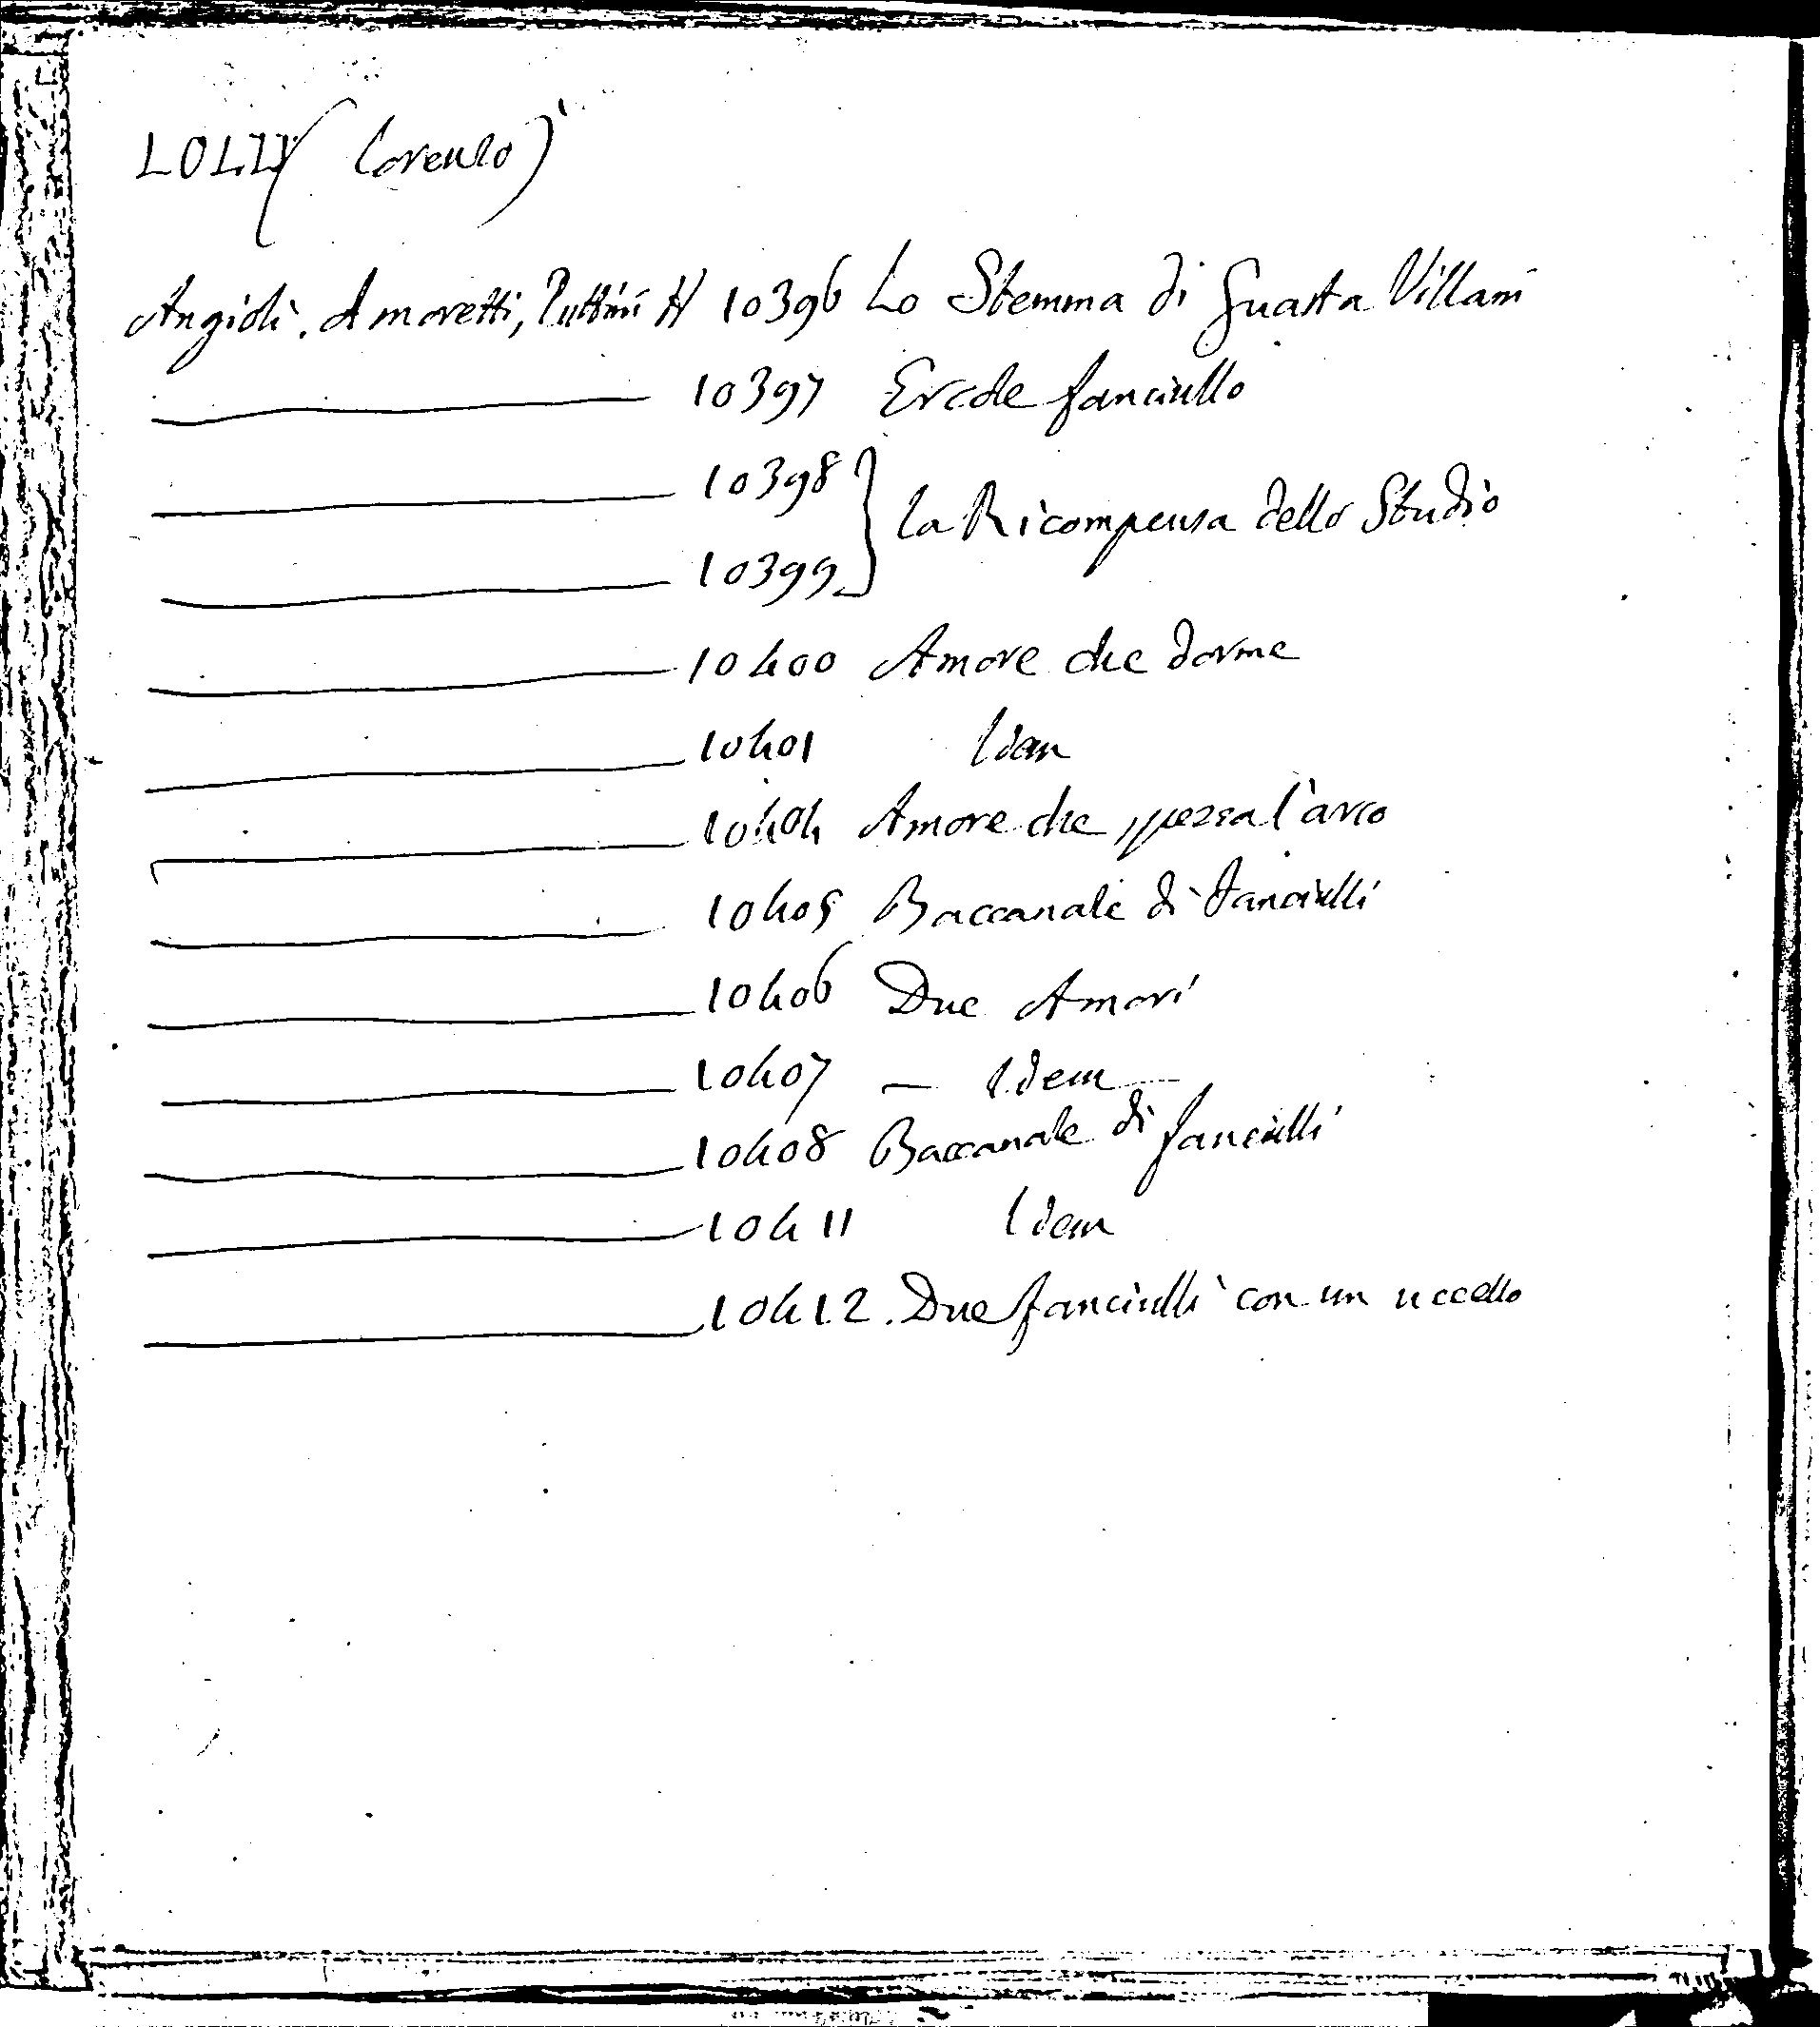 LOLLI (Lorenzo)
Angioli. Amoretti, Puttini H 10396 Lo Stemma di Guasta Villani
10397 Ercole fanciullo
10398
10399 } La Ricompensa dello Studio
10400 Amore che dorme
10401 Idem
10404 Amore che spezza l'arco
10405 Baccanale di Fanciulli
10406 Due Amori
10407 — Idem
10408 Baccanale di fanciulli
10411 Idem
10412. Due fanciulli con un uccello